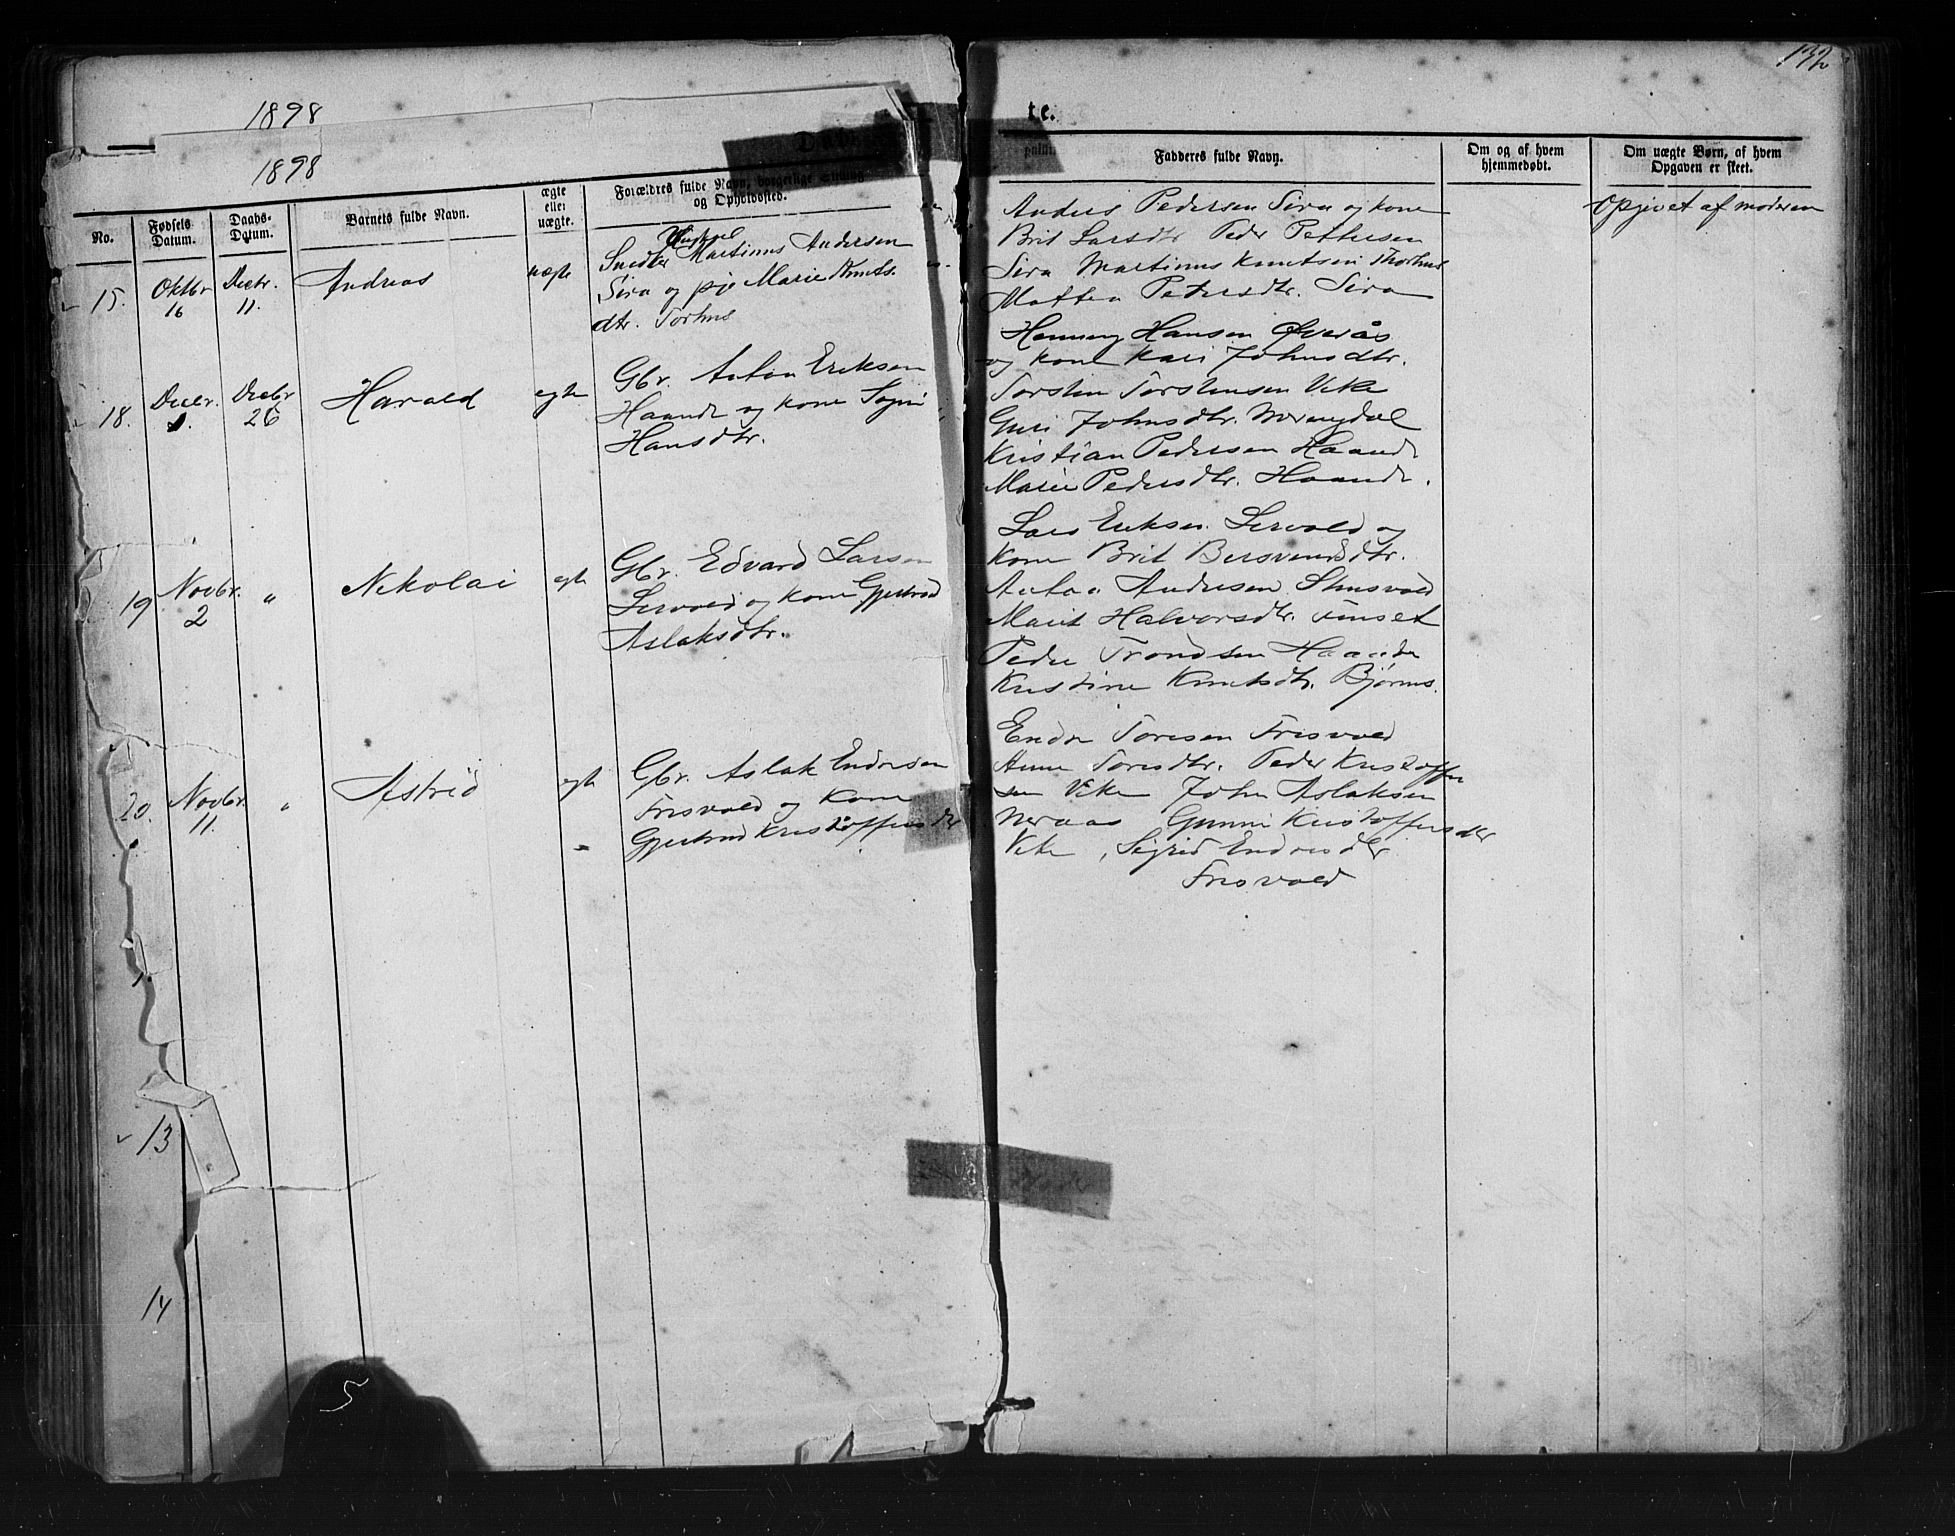 132
1898
1898
Døb
te.
No.
Fødsels Datum.
Daabs- Datum.
Barnets fulde Navn.
ægte eller uægte.
Forældres fulde Navn, borgerlige Stilling og Opholdssted.
Fadderes fulde Navn.
Om og af hvem hjemmedøbt.
Om uægte Børn, af hvem Opgaven er skeet.
15.
Oktbr 16
Decbr. 11.
Andreas
uægte
Martinus Andersen
Sira og pige Marie Knuts
dtr. Torhus
Anders Pedersen Sira og kone
Brit Larsdtr Peder Pettersen
Sira Martinus Knutsen Thorhus
Mattea Petersdtr. Sira
Opgivet af moderen
18.
Decbr.
Decbr 26
Harald
egte
Gbr. Anton Eriksen
Haande og kone
Hansdtr.
Henning Hansen Øverås
og kone Kari Johnsdtr.
Torstin Torstensen Vike
Guri Johnsdtr.
Kristian Pedersen Haande
Marie Pedersdtr. Haande.
19
Novbr. 2
"
Nekolai
egte
Gbr. Edvard Larsen
og kone Gjertrud
Aslaksdtr.
Lars Eriksen og
kone Brit Bersvendsdtr.
Anton Andersen
Marit Halvorsdtr. Finset
Peder Trondsen Haande
Kristine Knutsdtr.
20.
Novbr. 11.
"
Astrid
egte
Gbr. Aslak Endresen
Frisvold og kone
Gjertrud Kristoffersdtr
Endre Toresen Frisvold
Anne Toresdtr. Peder Kristoffer
sen Vike John Aslaksen
Neraas Gunni Kristoffersdtr
Vike, Sigrid Endresdtr
Frisvold
13
14
5